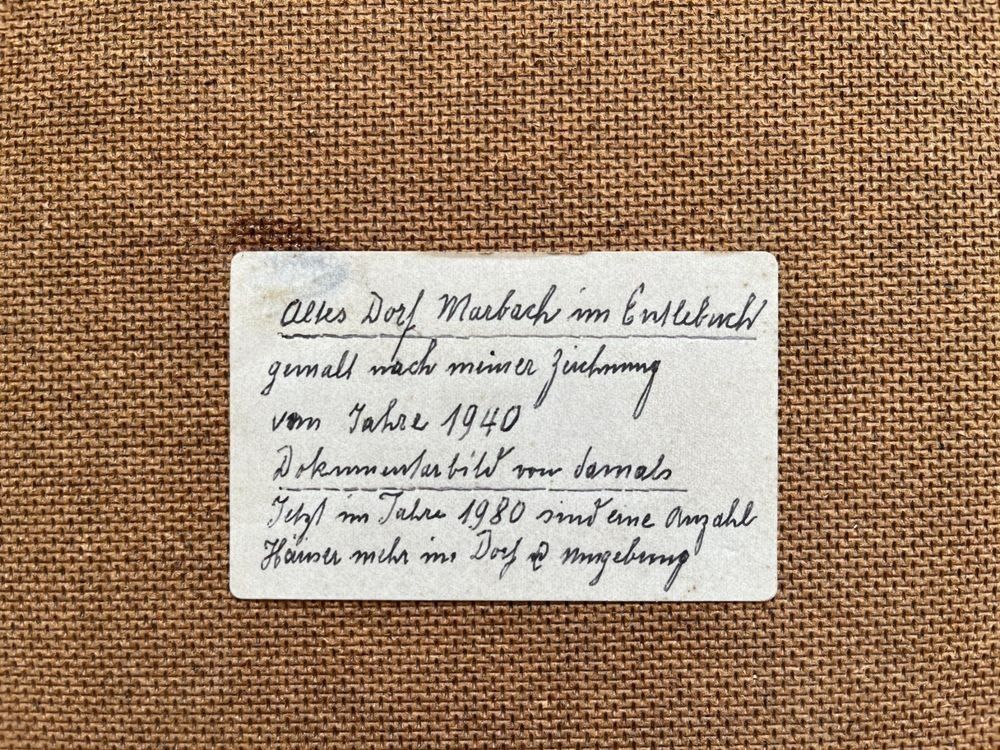 Altes Dorf Marbach im Entlebuch
gemalt nach meiner Zeichnung
vom Jahre 1940
Dokumentarbild von damals
Jetzt im Jahre 1980 sind eine Anzahl
Häuser mehr im Dorf u Umgebung